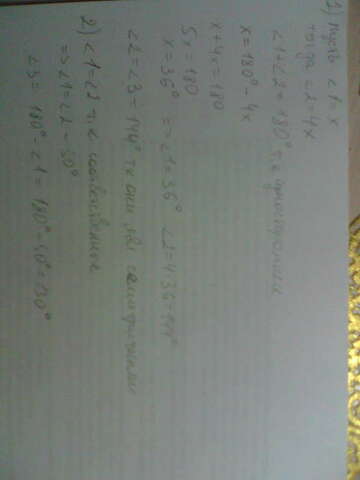 1) Пусть ∠1 = x
тогда ∠2 = 4x
∠1+∠2 = 180° т.к односторонние
x = 180° - 4x
x + 4x = 180
5x = 180
x = 36° => ∠1 = 36° ∠2 = 4·36=144°
∠2 = ∠3 - 144° т к они
2) ∠1 = ∠2 т.к
=> ∠1 = ∠2 - 50°
∠3 = 180° - ∠1 = 180° - 50° = 130°